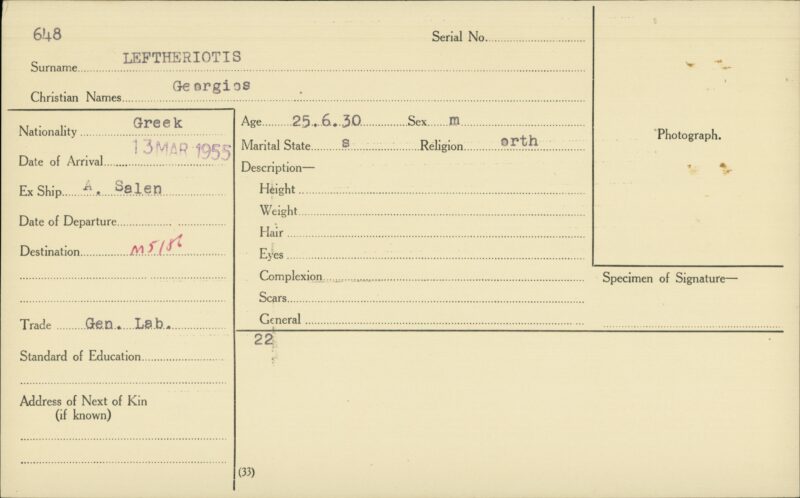 648
Serial No.
Surname LEFTHERIOTIS
Christian Names Georgios
Nationality Greek
Date of Arrival 13 MAR 1955
Ex Ship A. Salen
Date of Departure
Destination M5/86
Trade Gen. Lab.
Standard of Education
Address of Next of Kin
(if known)
Age 25.6.30 Sex m
Marital State s Religion orth
Description—
Height
Weight
Hair
Eyes
Complexion
Scars
General
22
(33)
Photograph.
Specimen of Signature—